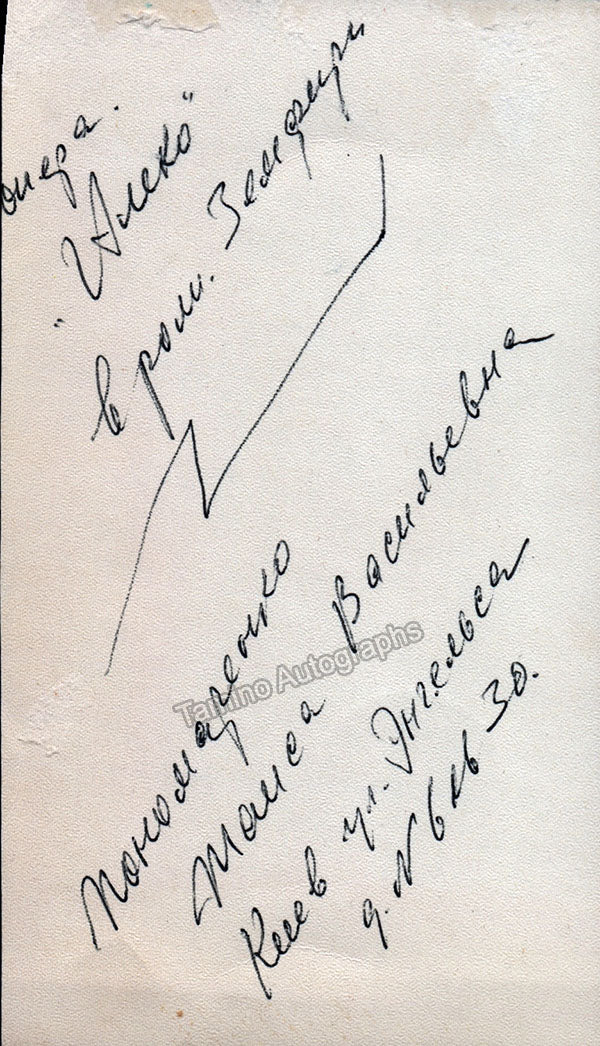 опера.
"Алеко"
в роли. Земфиры
Пономаренко
Таиса Васильевна
Киев ул. Энгельса
д. № 6 кв 30.
Tamino Autographs